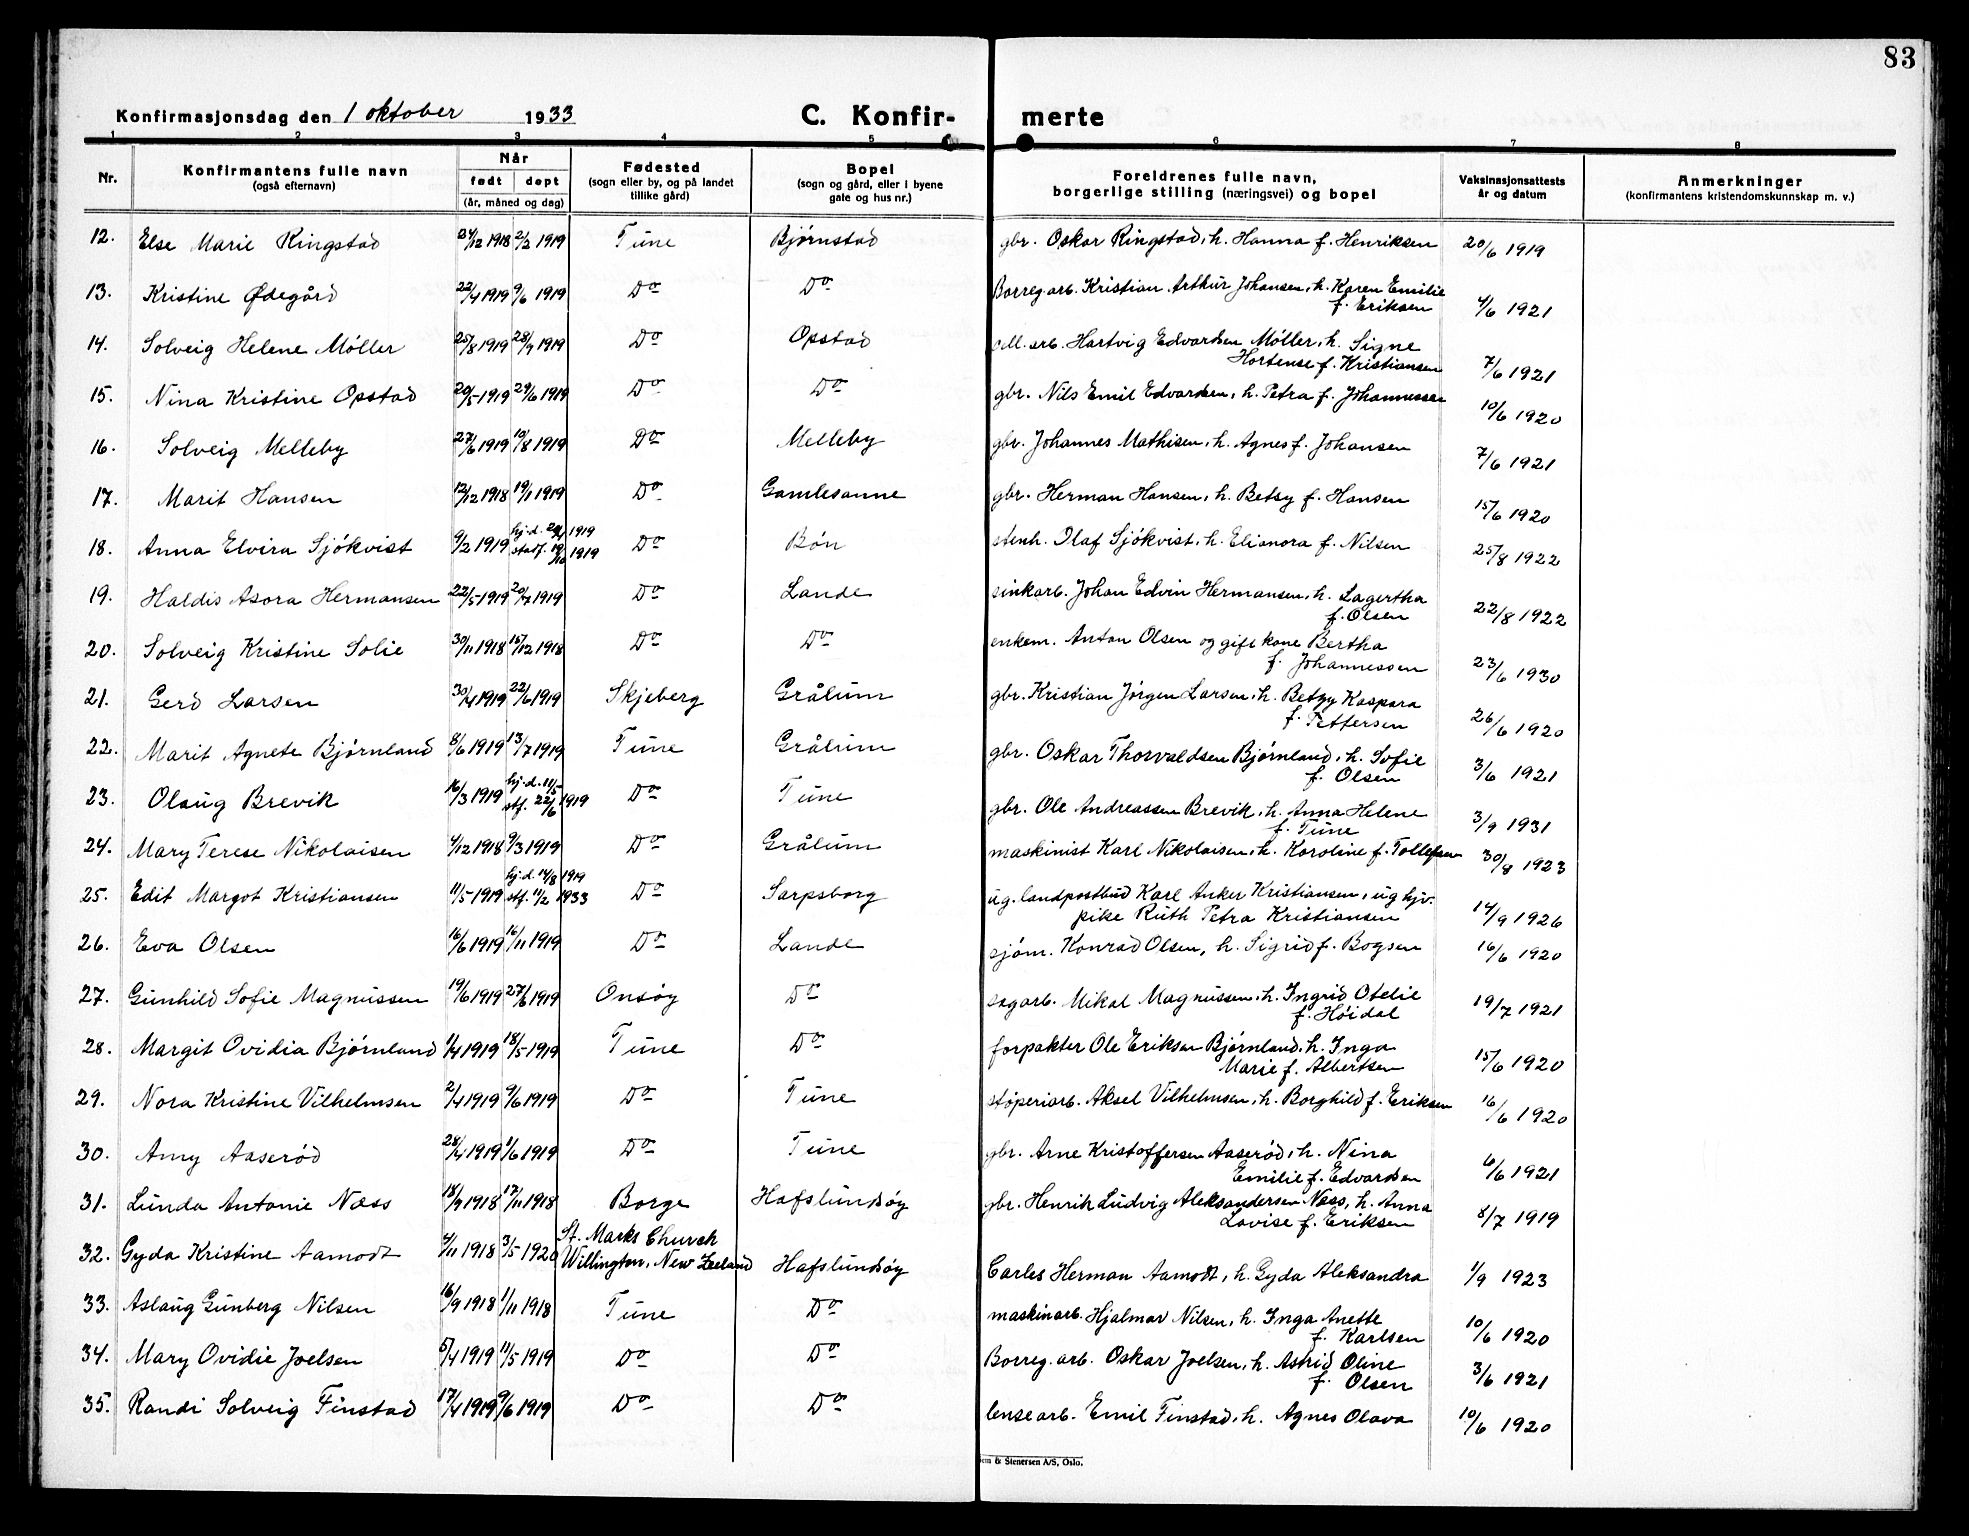 83
Konfirmasjonsdag den 1 oktober 1933 C. Konfir- merte
1 2 3 4 5 6 7 8
Nr. Konfirmantens fulle navn (også efternavn) Når født døpt (år, måned og dag) Fødested (sogn eller by, og på landet tillike gård) Bopel (sogn og gård, eller i byene gate og hus nr.) Foreldrenes fulle navn, borgerlige stilling (næringsvei) og bopel Vaksinasjonsattests år og datum Anmerkninger (konfirmantens kristendomskunnskap m. v.)
12. Else Marie Ringstad 24/12 1918 2/2 1919 Tune Bjørnstad gbr. Oskar Ringstad, h. Hanna f. Henriksen 20/6 1919
13. Kristine Ødegård 22/4 1919 9/6 1919 Do Do Borreg.arb. Kristian Arthur Johansen, h. Karen Emilie
f. Eriksen 4/6 1921
14. Solveig Helene Møller 25/8 1919 28/9 1919 Do Opstad cell. arb. Hartvig Edvardsen Møller, h. Signe
Hortense f. Kristiansen 7/6 1921
15. Nina Kristine Opstad 20/5 1919 29/6 1919 Do Do gbr. Nils Emil Edvardsen, h. Petra f. Johannessen 10/6 1920
16. Solveig Melleby 27/6 1919 10/8 1919 Do Melleby gbr. Johannes Mathisen, h. Agnes f. Johansen 7/6 1921
17. Marit Hansen 12/12 1918 19/1 1919 Do Gamlesanne gbr. Herman Hansen, h. Betsy f. Hansen 15/6 1920
18. Anna Elvira Sjökvist 9/2 1919 hj.d. 1919
stadf. 19/10 1919 Do Bön stenh. Olaf Sjökvist, h. Elianora f. Nilsen 25/8 1922
19. Haldis Asora Hermansen 22/5 1919 20/7 1919 Do Lande sinkarb. Johan Edvin Hermansen, h. Lagertha
f. Olsen 22/8 1922
20. Solveig Kristine Solie 30/11 1918 15/12 1918 Do Do enkem. Anton Olsen og gift kone Bertha
f. Johannessen 23/6 1930
21. Gerd Larsen 30/4 1919 22/6 1919 Skjeberg Grålum gbr. Kristian Jörgen Larsen, h. Betzy Kaspara
f. Pettersen 26/6 1920
22. Marit Agnete Bjørnland 8/6 1919 13/7 1919 Tune Grålum gbr. Oskar Thorvaldsen Bjørnland, h. Sofie
f. Olsen 3/6 1921
23. Olaug Brevik 16/3 1919 hj.d. 11/5
stf. 22/6 1919 Do Tune gbr. Ole Andreassen Brevik, h. Anna Helene
f. Tune 3/9 1931
24. Mary Terese Nikolaisen 4/12 1918 9/3 1919 Do Grålum maskinist Karl Nikolaisen, h. Karoline f. Tollefsen 30/8 1923
25. Edit Margot Kristiansen 11/5 1919 hj.d. 14/8 1919
stf. 11/2 1933 Do Sarpsborg ug. landpostbud Karl Anker Kristiansen, ug hjv.
pike Ruth Petra Kristiansen 14/9 1926
26. Eva Olsen 16/6 1919 16/11 1919 Do Lande sjöm. Konrad Olsen, h. Sigrid f. Bogsen 16/6 1920
27. Gunhild Sofie Magnussen 19/6 1919 27/6 1919 Onsøy Do sagarb. Mikal Magnussen, h. Ingrid Otelie
f. Höidal 19/7 1921
28. Margit Ovidia Bjørnland 1/4 1919 18/5 1919 Tune Do forpakter Ole Eriksen Bjørnland, h. Inga
Marie f. Albertsen 15/6 1920
29. Nora Kristine Vilhelmsen 2/4 1919 9/6 1919 Do Tune støperiarb. Aksel Vilhelmsen, h. Borghild f. Eriksen 16/6 1920
30. Amy Aaserød 28/4 1919 1/6 1919 Do Tune gbr. Arne Kristoffersen Aaserød, h. Nina
Emilie f. Edvardsen 6/6 1921
31. Lunda Antonie Næss 18/9 1918 17/11 1918 Borge Hafslundsøy gbr. Henrik Ludvig Aleksandersen Næss, h. Anna
Lovise f. Eriksen 8/7 1919
32. Gyda Kristine Aamodt 4/11 1918 3/5 1920 St. Marks Church
Willington, New Zeeland Hafslundsøy Carles Herman Aamodt, h. Gyda Aleksandra 1/9 1923
33. Aslaug Gunberg Nilsen 16/9 1918 11/11 1918 Tune Do maskinarb. Hjalmar Nilsen, h. Inga Anette
f. Karlsen 10/6 1920
34. Mary Ovidie Joelsen 5/4 1919 11/5 1919 Do Do Borreg. arb. Oskar Joelsen, h. Astrid Oline
f. Olsen 3/6 1921
35. Randi Solveig Finstad 17/4 1919 9/6 1919 Do Do lensearb. Emil Finstad, h. Agnes Olava 10/6 1920
& Stenersen A/S, Oslo.